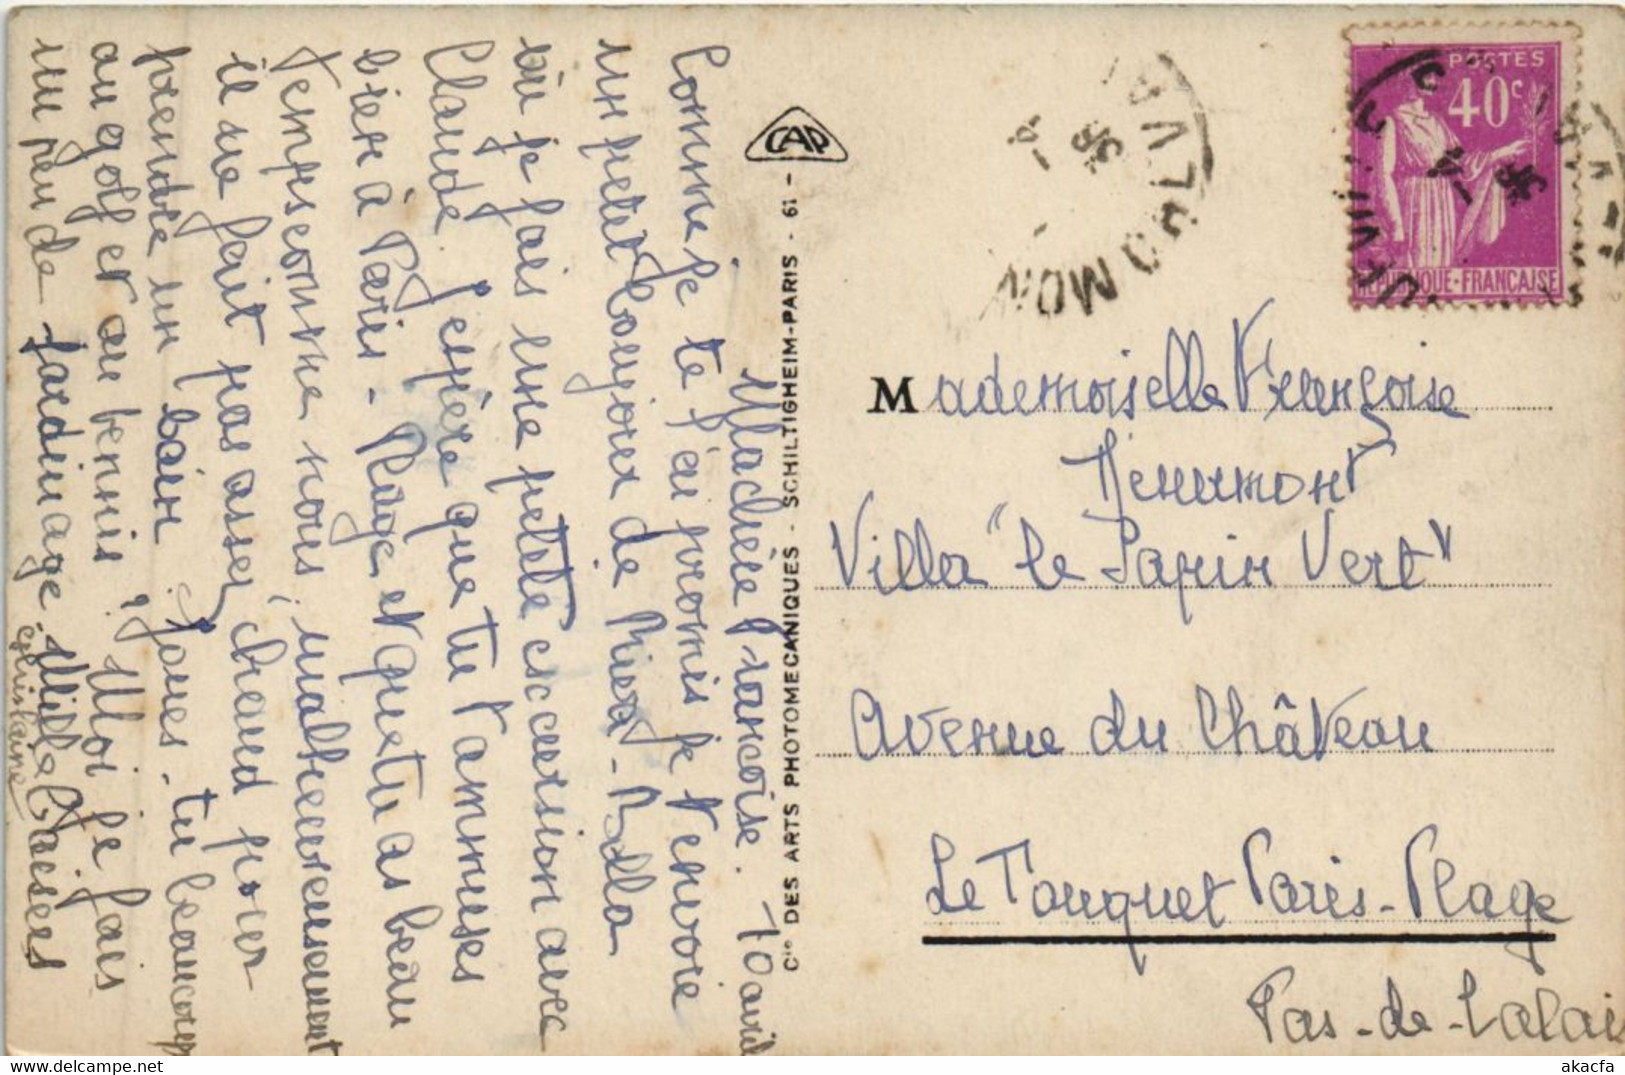 Ma chère Françoise. 10 avril
Comme je te l'ai promis je t'envoie
un petit bonjour de Bella
où je fais une petite excursion avec
Claude. J'espère que tu t'amuses
bien à Paris-Plage et que tu as beau
temps comme nous, malheureusement
il ne fait pas assez chaud pour
prendre un bain. Joues-tu beaucoup
au golf et au tennis ? Moi je fais
un peu de jardinage. Mille baisers
Ghislaine
CAP
Cie DES ARTS PHOTOMECANIQUES - SCHILTIGHEIM-PARIS - 61 -
POSTES
40c
REPUBLIQUE-FRANÇAISE
Mademoiselle Françoise
Villa "le Sapin Vert"
Avenue du Château
Le Touquet Paris-Plage
Pas-de-Calais
akacfa